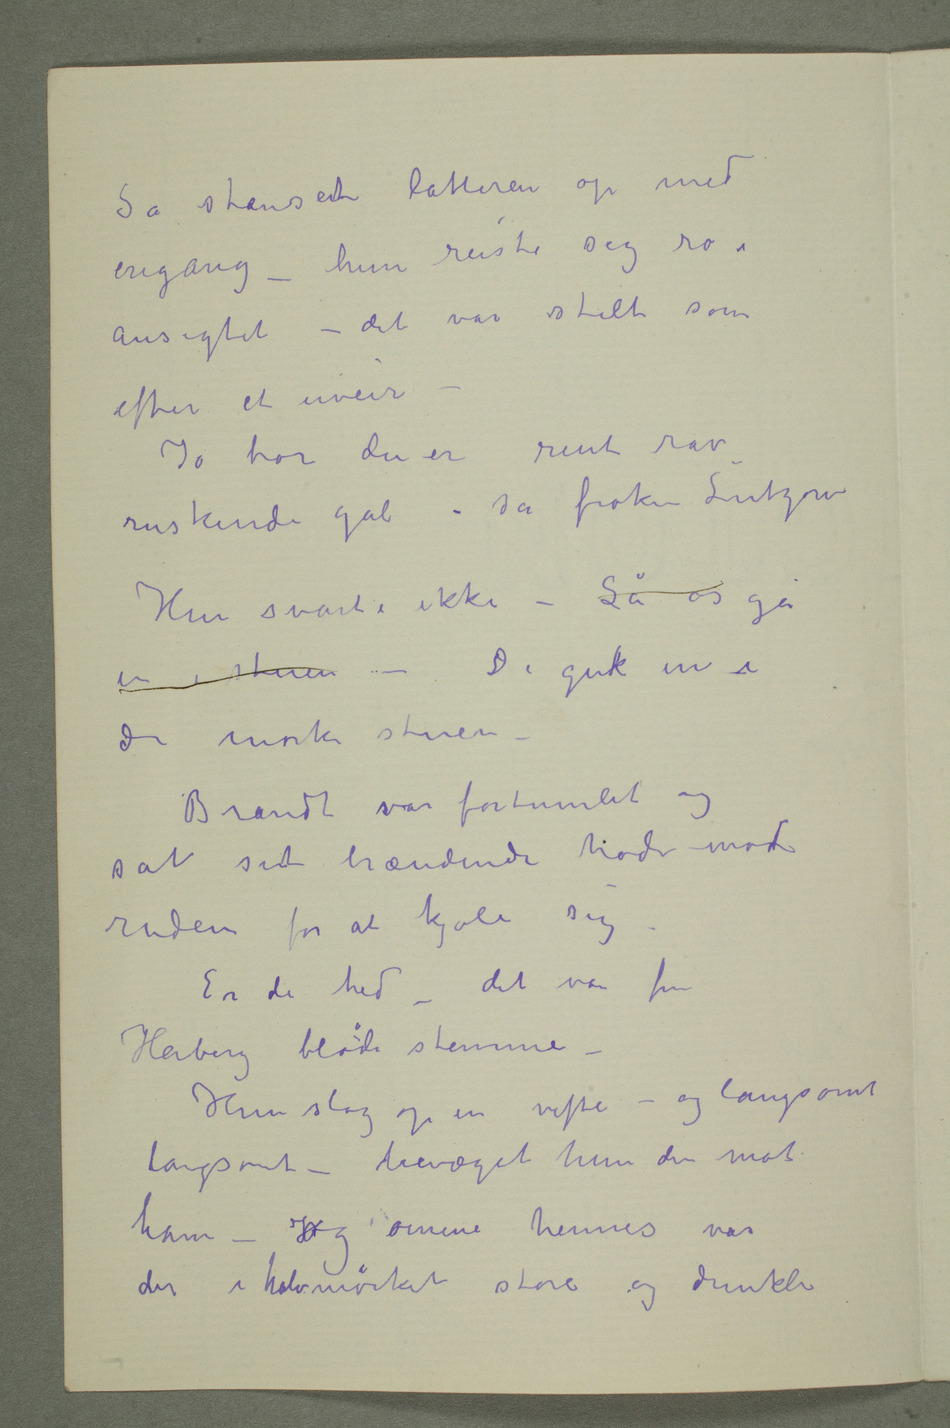 Så stanset latteren op med
engang – hun reiste sig rø i
ansigtet – det var stilt som
efter et uveir –
Jo hør du er rent rav
ruskende gal – sa frøken Lützow
Hun svarte ikke – Så os gå
in i stuen – De gik in i
de mørke stuen –
Brandt var fortumlet og
sat sit brændende hode mod
ruden for at kjøle sig –
Er de hed – det var fru
Heiberg bløde stemme –
Hun slog op en vifte – og langsomt
langsomt – bevæget hun den mot
ham – og öinene hennes var
der i halvmörket store og dunkle